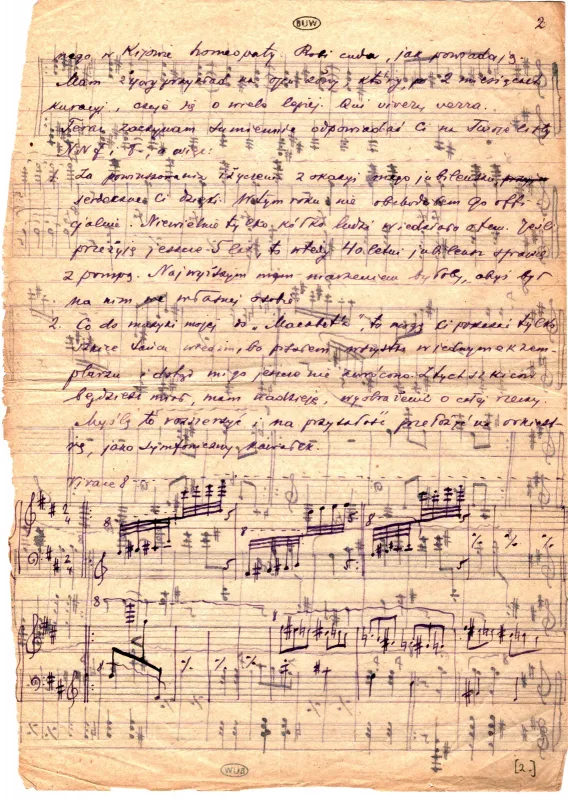 BUW
2
nego w Kijowie homeopaty. Robi cuda, jak powiadają.
Mam żywy przykład na który, po 2 miesiącach
kuracji, czuje się o wiele lepiej. Qui vivera verra.
Teraz zaczynam sumiennie odpowiadać Ci na Twoje listy
a więc:
1. Za powinszowania i życzenia z okazji mego jubileuszu,
serdeczne Ci dzięki. W tym roku nie obchodziłem go ofi-
cjalnie. Niewielkie tylko kółko ludzi wiedziało o tem. Jeśli
przeżyję jeszcze 5 lat, to wtedy 40 letni jubileusz sprawię
z pompą. Najwyższym mym marzeniem byłoby, abyś był
na nim we własnej osobie.
2. Co do muzyki mojej do „Macbeth'a", to mogę Ci posłać tylko
tańca wiedźm, bo pisałem wszystko w jednym egzem-
plarzu i dotąd mi go jeszcze nie zwrócono. Z tych szkiców
będziesz miał, mam nadzieję, wyobrażenie o całej rzeczy.
Myślę to rozszerzyć i na przyszłość przerobić na orkiest-
rę, jako symfoniczny kawałek.
Vivace 8
8
5
8
5
8
5
8
8
[2.]
BUW